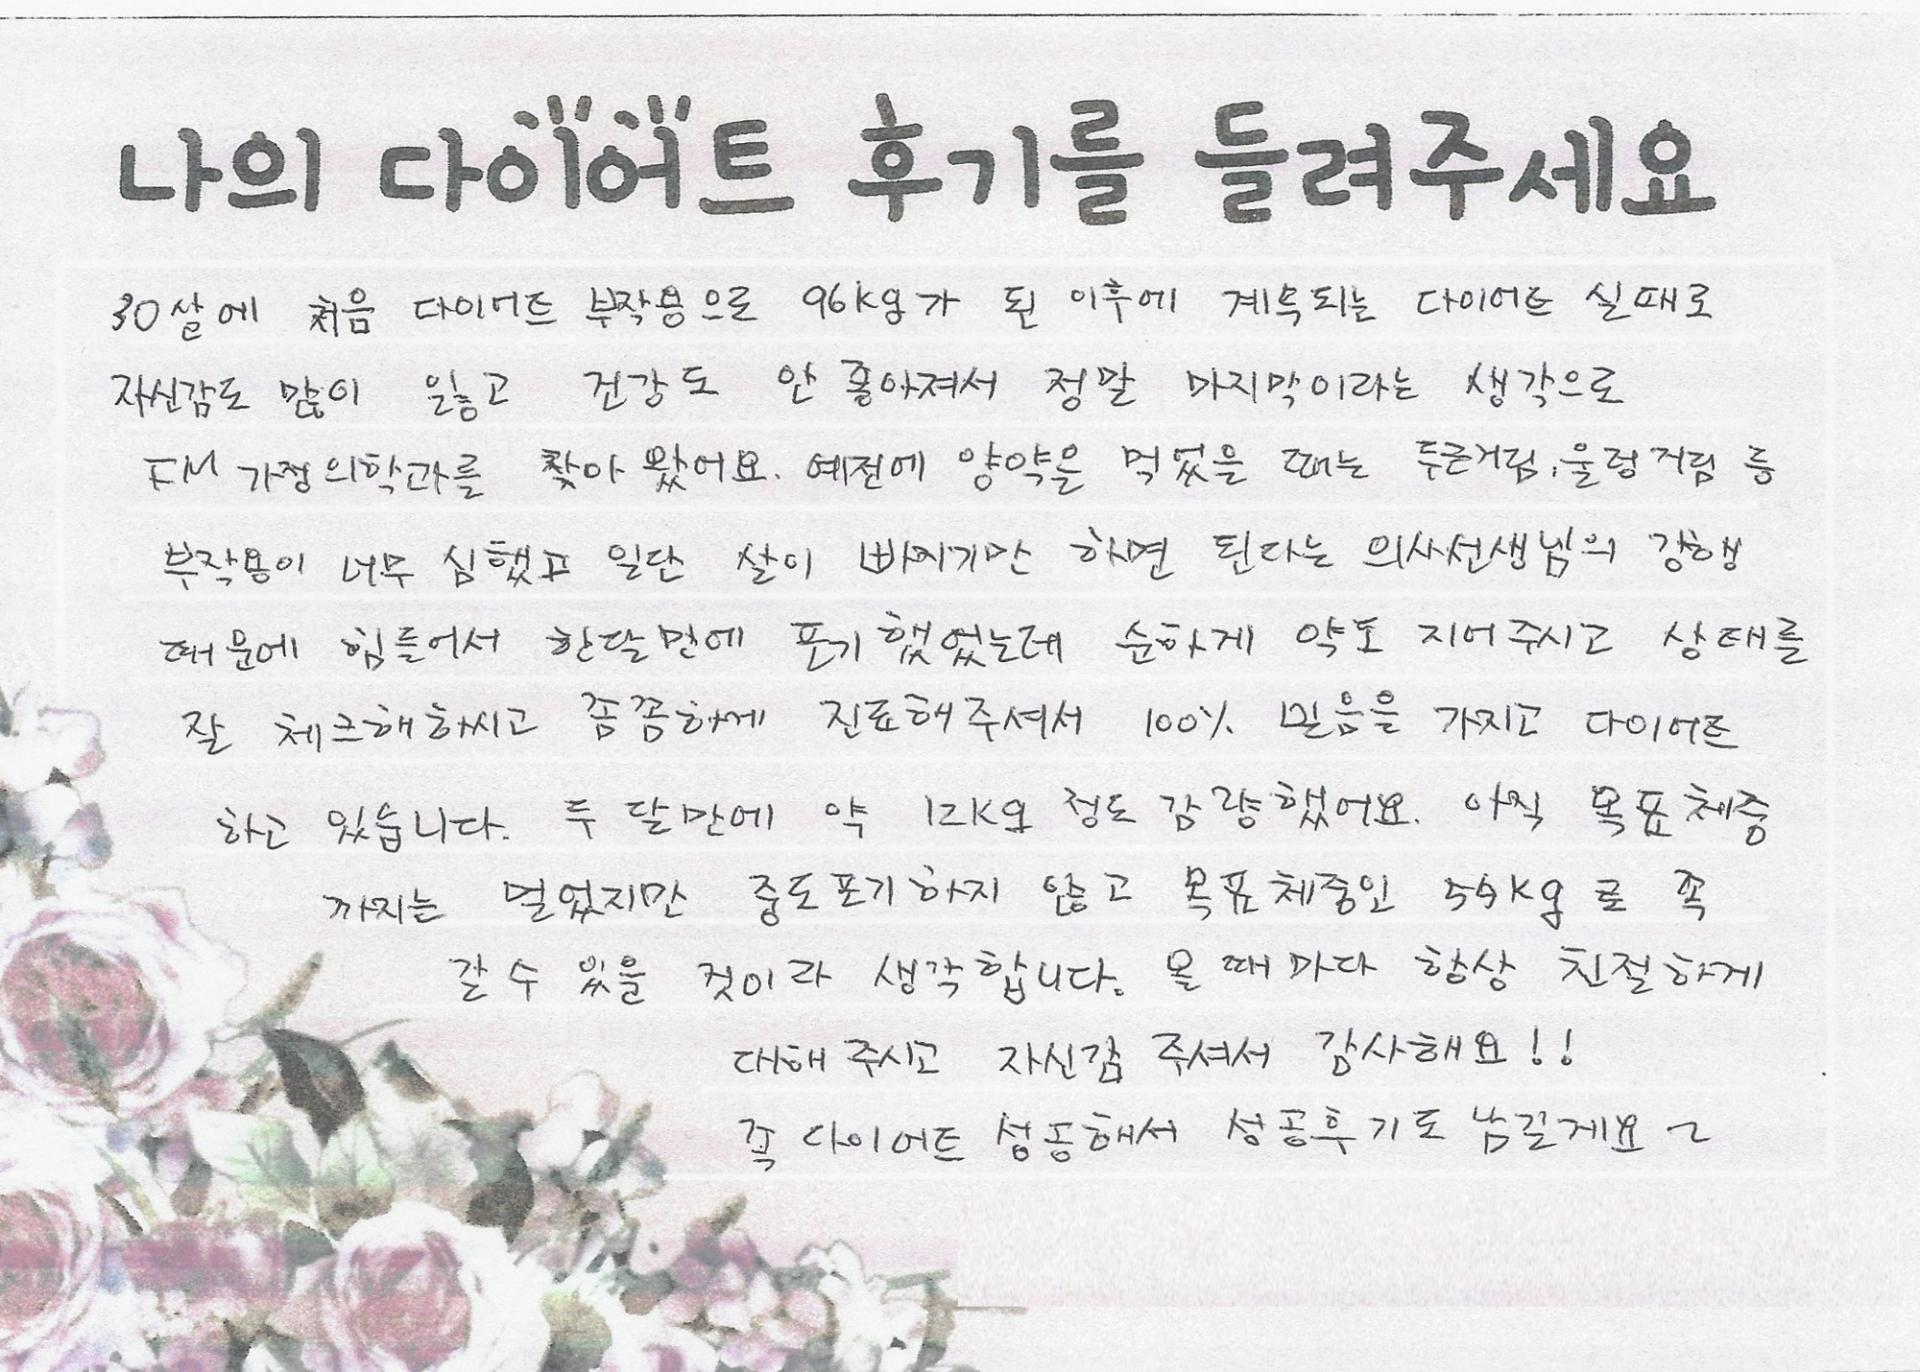 나의 다이어트 후기를 들려주세요
30살에 처음 다이어트 부작용으로 96kg가 된 이후에 계속되는 다이어트 실패로
자신감도 많이 잃고 건강도 안 좋아져서 정말 마지막이라는 생각으로
FM 가정의학과를 찾아 왔어요. 예전에 양약을 먹었을 때는 두근거림, 울렁거림 등
부작용이 너무 심했고 일단 살이 빠지기만 하면 된다는 의사선생님의 강행
때문에 힘들어서 한달만에 포기했었는데 순하게 약도 지어주시고 상태를
잘 체크해주시고 꼼꼼하게 진료해주셔서 100% 믿음을 가지고 다이어트
하고 있습니다. 두 달만에 약 12kg 정도 감량했어요. 아직 목표체중
까지는 멀었지만 중도포기하지 않고 목표체중인 55kg로 쭉
갈 수 있을 것이라 생각합니다. 올 때마다 항상 친절하게
대해 주시고 자신감 주셔서 감사해요!!
꼭 다이어트 성공해서 성공후기도 남길게요~